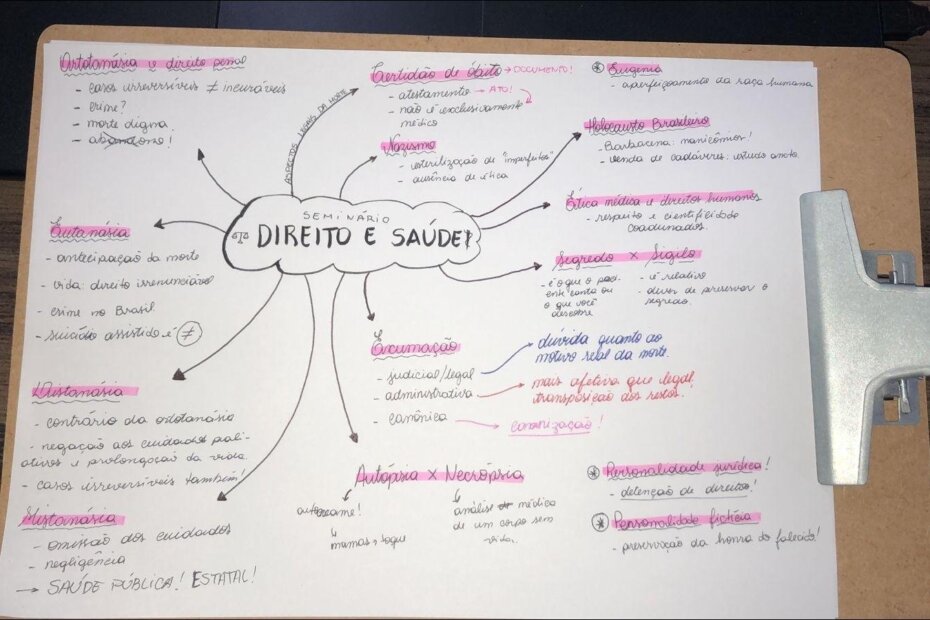 Ortotanásia e direito penal
- casos irreversíveis ≠ incuráveis
- crime?
- morte digna
- abandono!
ASPECTOS LEGAIS DA MORTE
Certidão de óbito → DOCUMENTO!
- atestamento → ATO!
- não é exclusivamente
médico
Nazismo
- esterilização de "imperfeitos"
- ausência de ética
* Eugenia
- aperfeiçoamento da raça humana
Holocausto Brasileiro
- Barbacena: manicômios!
- venda de cadáveres: estudo anato.
Ética médica e direitos humanos
- respeito e cientificidade
coadunados.
Segredo × Sigilo
- é o que o paci-
ente conta ou
o que você
descobre
- é relativo
- dever de preservar o
segredo.
SEMINÁRIO
DIREITO E SAÚDE
Eutanásia
- antecipação da morte
- vida: direito irrenunciável
- crime no Brasil
- suicídio assistido é ≠
Distanásia
- contrário da ortotanásia
- negação aos cuidados pali-
ativos e prolongação da vida.
- casos irreversíveis também!
Mistanásia
- omissão dos cuidados
- negligência
→ SAÚDE PÚBLICA! ESTATAL!
Exumação
- judicial/legal
dúvida quanto ao
motivo real da morte.
- administrativa
mais afetiva que legal.
transposição dos restos.
- canônica
canonização!
Autópsia × Necrópsia
autoexame!
mamas, toque
análise médica
de um corpo sem
vida.
* Personalidade jurídica!
- detenção de direitos!
* Personalidade fictícia
- preservação da honra do falecido!